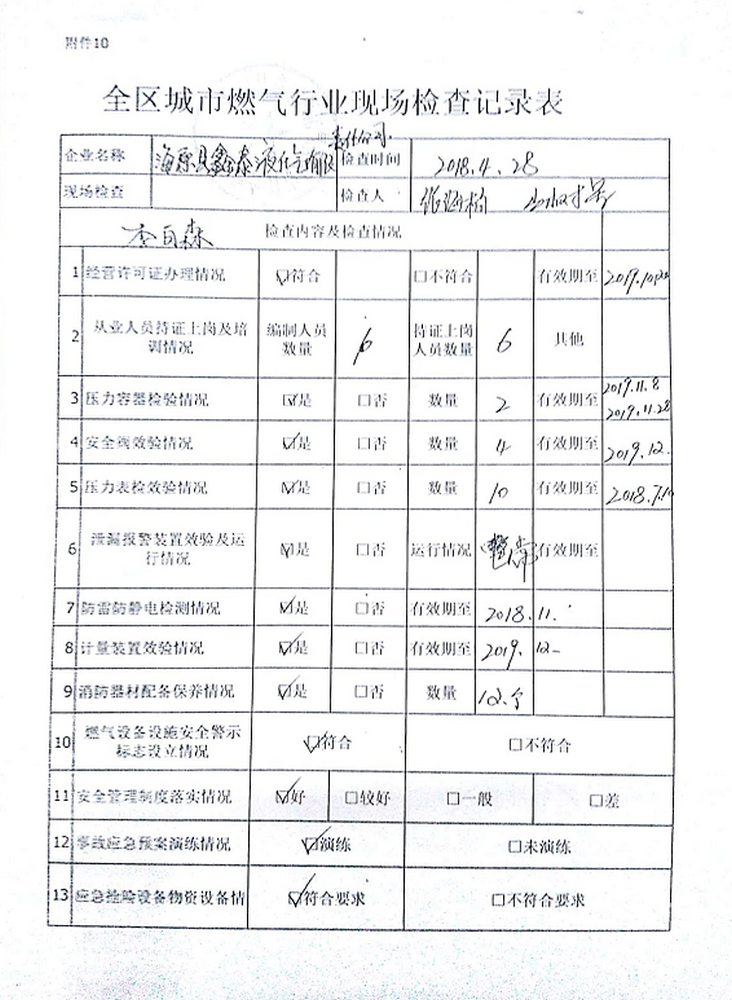 附件10
全区城市燃气行业现场检查记录表
责任公司
企业名称 海原县鑫泰液化气有限 检查时间 2018.4.28
现场检查 检查人
李白森 检查内容及检查情况
1 经营许可证办理情况 ☑符合 □不符合 有效期至 2019.10
2 从业人员持证上岗及培 编制人员 6 持证上岗 6 其他
训情况 数量 人员数量
3 压力容器检验情况 ☑是 □否 数量 2 有效期至 2019.11.8
2019.11.28
4 安全阀效验情况 ☑是 □否 数量 4 有效期至 2019.12.
5 压力表检效验情况 ☑是 □否 数量 10 有效期至 2018.7.10
6 泄漏报警装置效验及运 ☑是 □否 运行情况 有效期至
行情况
7 防雷防静电检测情况 ☑是 □否 有效期至 2018.11.
8 计量装置效验情况 ☑是 □否 有效期至 2019.12-
9 消防器材配备保养情况 ☑是 □否 数量 12个
10 燃气设备设施安全警示 ☑符合 □不符合
标志设立情况
11 安全管理制度落实情况 ☑好 □较好 □一般 □差
12 事故应急预案演练情况 ☑演练 □未演练
13 应急抢险设备物资设备情 ☑符合要求 □不符合要求